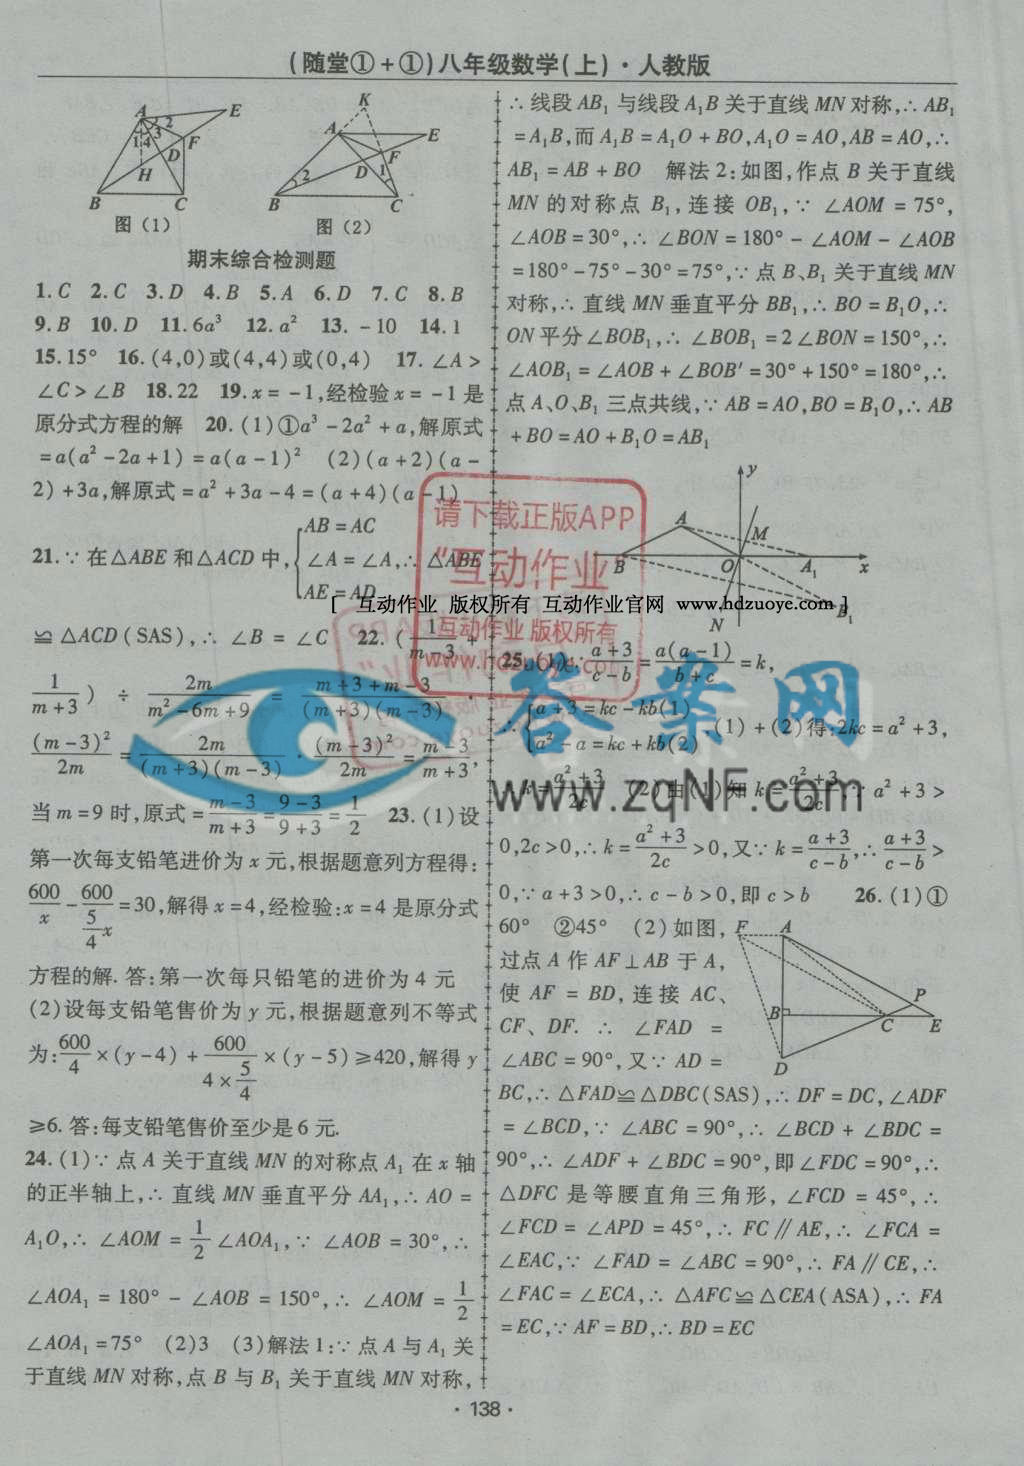 (随堂①+①)八年级数学(上)·人教版
图(1) 图(2)
期末综合检测题
1.C 2.C 3.D 4.B 5.A 6.D 7.C 8.B
9.B 10.D 11.6a³ 12.a² 13.-10 14.1
15.15° 16.(4,0)或(4,4)或(0,4) 17.∠A>
∠C>∠B 18.22 19.x=-1,经检验x=-1是
原分式方程的解 20.(1)①a³-2a²+a,解原式
=a(a²-2a+1)=a(a-1)² (2)(a+2)(a-
2)+3a,解原式=a²+3a-4=(a+4)(a-1)
21.∵在△ABE和△ACD中,{AB=AC
∠A=∠A,∴△ABE
AE=AD
≌△ACD(SAS),∴∠B=∠C 22.(1/(m-3)+
1/(m+3))÷2m/(m²-6m+9)=(m+3+m-3)/((m+3)(m-3))·
(m-3)²/2m=2m/((m+3)(m-3))·(m-3)²/2m=(m-3)/(m+3),
当m=9时,原式=(m-3)/(m+3)=(9-3)/(9+3)=1/2 23.(1)设
第一次每支铅笔进价为x元,根据题意列方程得:
600/x-600/(5/4 x)=30,解得x=4,经检验:x=4是原分式
方程的解.答:第一次每只铅笔的进价为4元
(2)设每支铅笔售价为y元,根据题意列不等式
为:600/4×(y-4)+600/(4×5/4)×(y-5)≥420,解得y
≥6.答:每支铅笔售价至少是6元.
24.(1)∵点A关于直线MN的对称点A₁在x轴
的正半轴上,∴直线MN垂直平分AA₁,∴AO=
A₁O,∴∠AOM=1/2∠AOA₁,∵∠AOB=30°,∴
∠AOA₁=180°-∠AOB=150°,∴∠AOM=1/2
∠AOA₁=75° (2)3 (3)解法1:∵点A与A₁关
于直线MN对称,点B与B₁关于直线MN对称,
∴线段AB₁与线段A₁B关于直线MN对称,∴AB₁
=A₁B,而A₁B=A₁O+BO,A₁O=AO,AB=AO,∴
AB₁=AB+BO 解法2:如图,作点B关于直线
MN的对称点B₁,连接OB₁,∵∠AOM=75°,
∠AOB=30°,∴∠BON=180°-∠AOM-∠AOB
=180°-75°-30°=75°,∵点B、B₁关于直线MN
对称,∴直线MN垂直平分BB₁,∴BO=B₁O,∴
ON平分∠BOB₁,∴∠BOB₁=2∠BON=150°,∴
∠AOB₁=∠AOB+∠BOB′=30°+150°=180°,∴
点A、O、B₁三点共线,∵AB=AO,BO=B₁O,∴AB
+BO=AO+B₁O=AB₁
25.(1)∵(a+3)/(c-b)=a(a-1)/(b+c)=k,
∴{a+3=kc-kb(1)
a²-a=kc+kb(2) (1)+(2)得:2kc=a²+3,
k=(a²+3)/2c (2)由(1)知k=(a²+3)/2c∵a²+3>
0,2c>0,∴k=(a²+3)/2c>0,又∵k=(a+3)/(c-b),∴(a+3)/(c-b)>
0,∵a+3>0,∴c-b>0,即c>b 26.(1)①
60° ②45° (2)如图,
过点A作AF⊥AB于A,
使AF=BD,连接AC、
CF、DF.∴∠FAD=
∠ABC=90°,又∵AD=
BC,∴△FAD≌△DBC(SAS),∴DF=DC,∠ADF
=∠BCD,∵∠ABC=90°,∴∠BCD+∠BDC=
90°,∴∠ADF+∠BDC=90°,即∠FDC=90°,∴
△DFC是等腰直角三角形,∠FCD=45°,∴
∠FCD=∠APD=45°,∴FC∥AE,∴∠FCA=
∠EAC,∵∠FAD=∠ABC=90°,∴FA∥CE,∴
∠FAC=∠ECA,∴△AFC≌△CEA(ASA),∴FA
=EC,∵AF=BD,∴BD=EC
·138·
请下载正版APP
“互动作业”
互动作业 版权所有
[ 互动作业 版权所有 互动作业官网 www.hdzuoye.com ]
答案网
www.zqNF.com